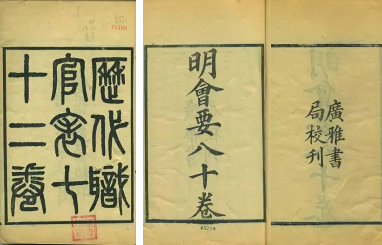 歷代職
官表七
十二卷
明會要八十卷
廣雅書
局校刊